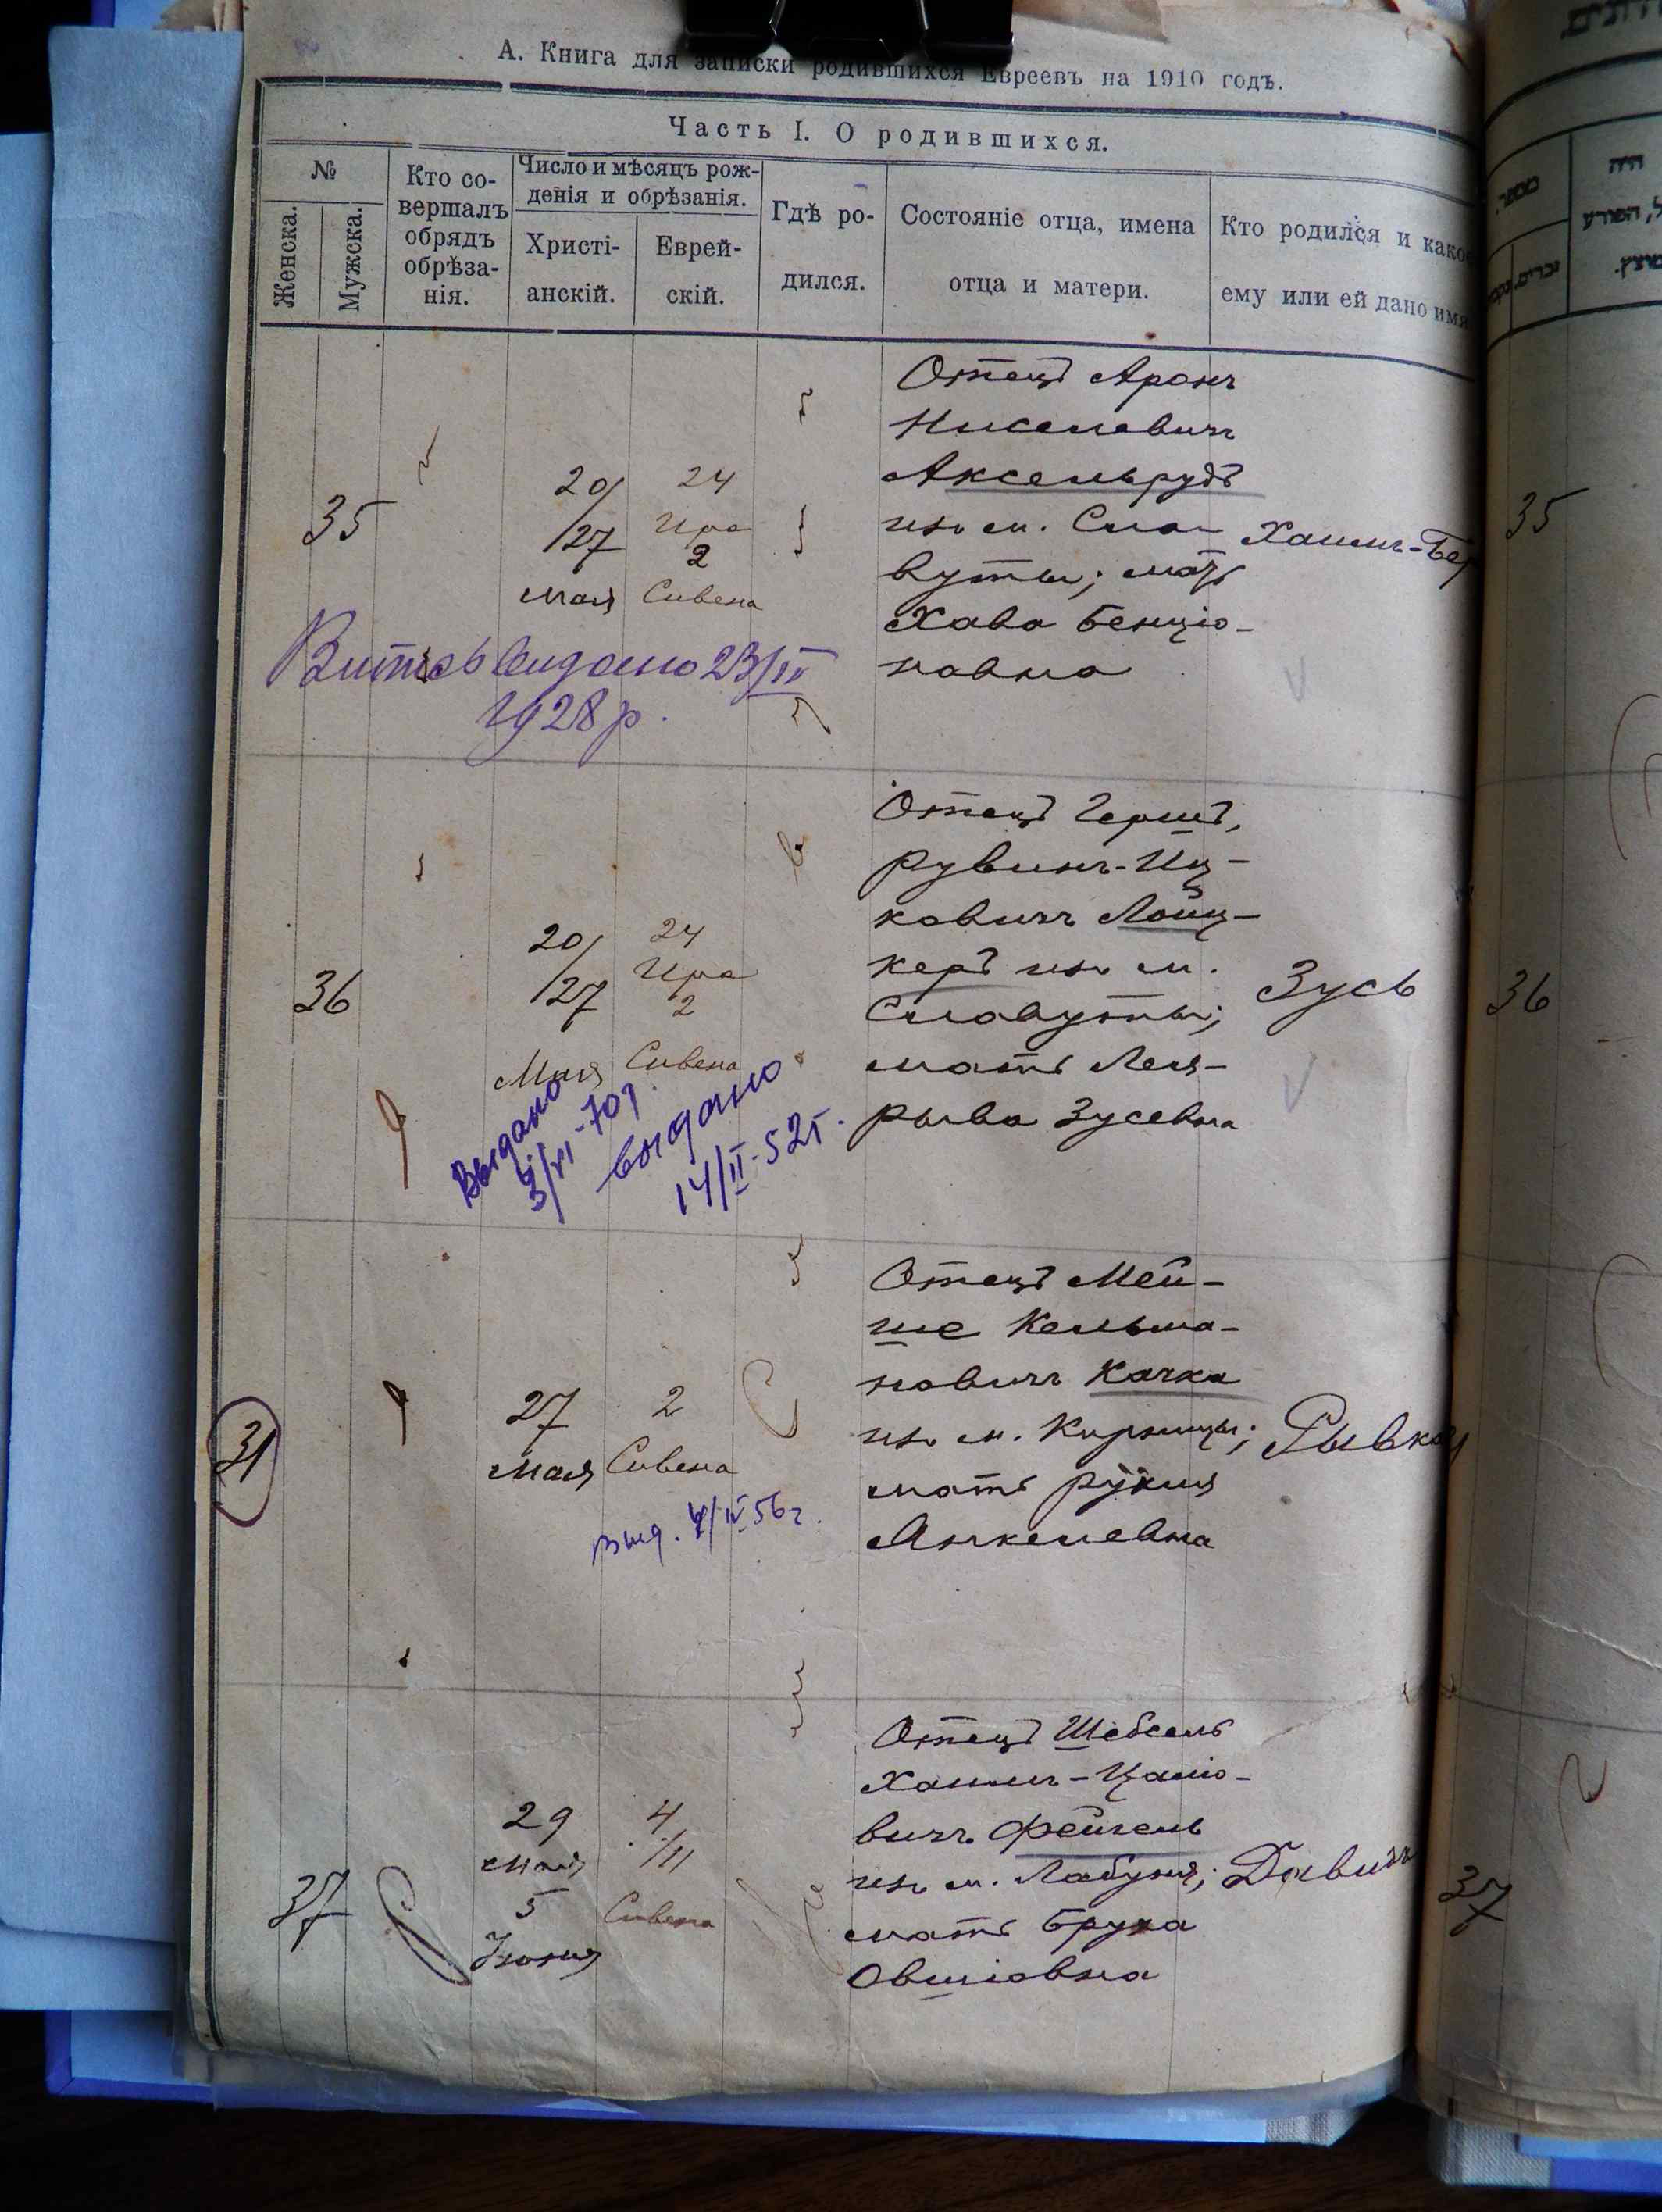 А. Книга для записки родившихся Евреевъ на 1910 годъ.
Часть I. О родившихся.
№
Женска.
Мужска.
Кто со-
вершалъ
обрядъ
обрѣза-
нія.
Число и мѣсяцъ рож-
денія и обрѣзанія.
Христі-
анскій.
Еврей-
скій.
Гдѣ ро-
дился.
Состояніе отца, имена
отца и матери.
Кто родился и како
ему или ей дано имя
35
20/
/27
мая
24
Ира
2
Сивена
Отецъ Аронъ
Ниселевичъ
Аксельрудъ
изъ м. Сла-
вуты; мать
Хава Бенціо-
новна
Хаимъ-Бер
35
Витяг видано 23/IV
1928 р.
36
20/
/27
Мая
24
Ира
2
Сивена
Отецъ Гершъ,
Рувинъ-Иц-
ковичъ Лойц-
керъ изъ м.
Славуты;
мать Лея-
Рыва Зусевна
Зусь
36
Выдано
3/VI-70г.
выдано
14/II-52г.
31
27
мая
2
Сивена
Отецъ Мей-
ше Кельма-
новичъ Качка
изъ м.
мать Рухля
Янкелевна
Рывка
Выд. 4/IV 56г.
37
29
мая
5
Іюня
4
/11
Сивена
Отецъ Шебсель
Хаимъ-
вичъ Фейгель
изъ м. Лабуня;
мать Бруха
Овшіовна
Давидъ
37